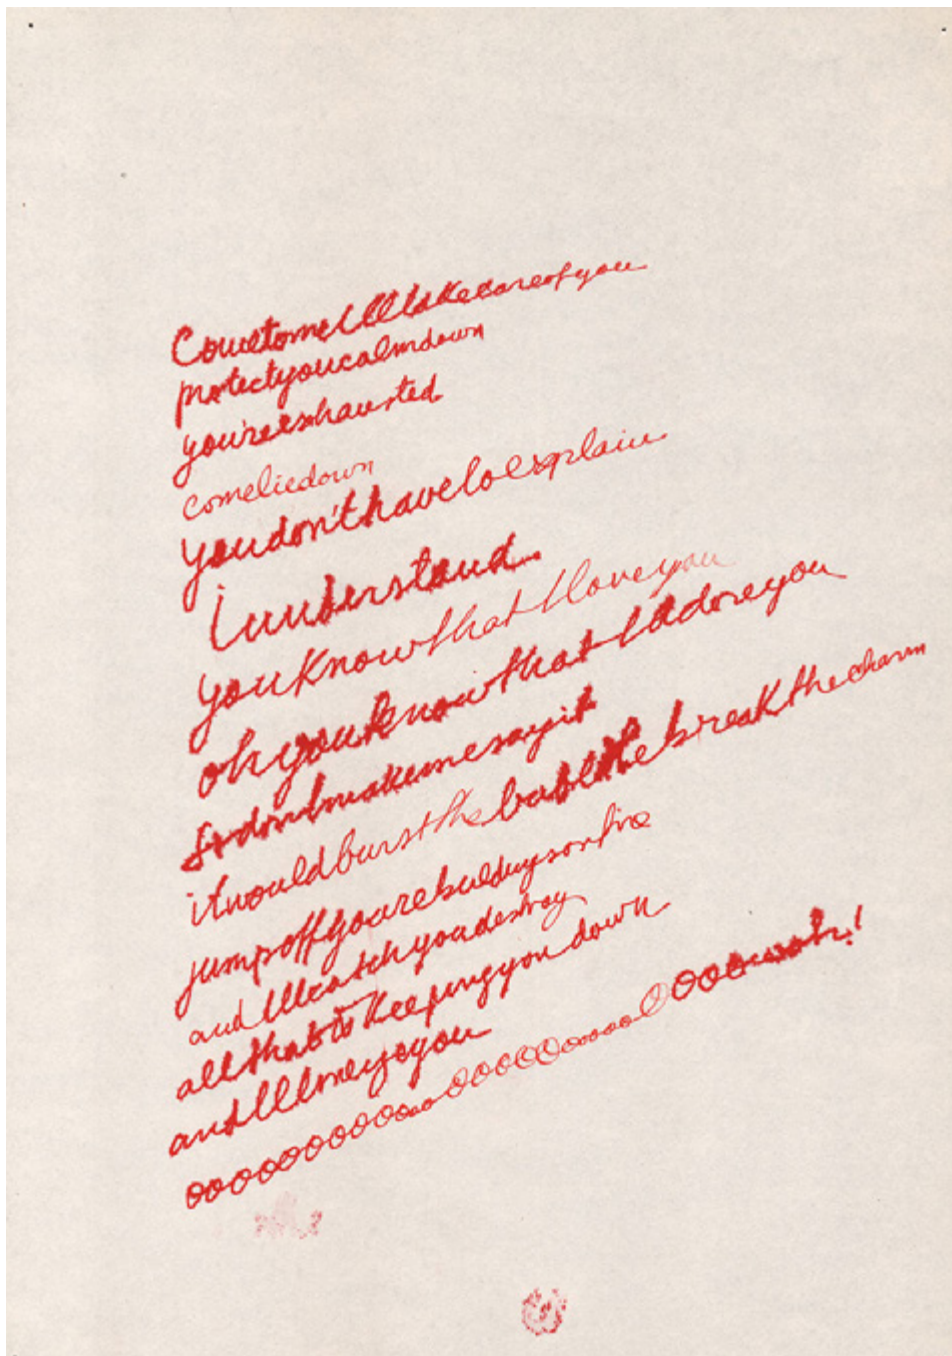 CometomeIlltakecareofyou
protectyoucalmdown
you'reexhausted
comeliedown
youdon'thavetoexplain
iunderstand
youknowthatIloveyou
ohyouknowthatIadoreyou
sodontmakemesayit
itwouldburstthebubblebreakthecharm
jumpoffyourebuildingsonfire
andIllcatchyoudestroy
allthatiskeepingyoudown
andIll
oooooooooooooooooooooooooooooooooooh!